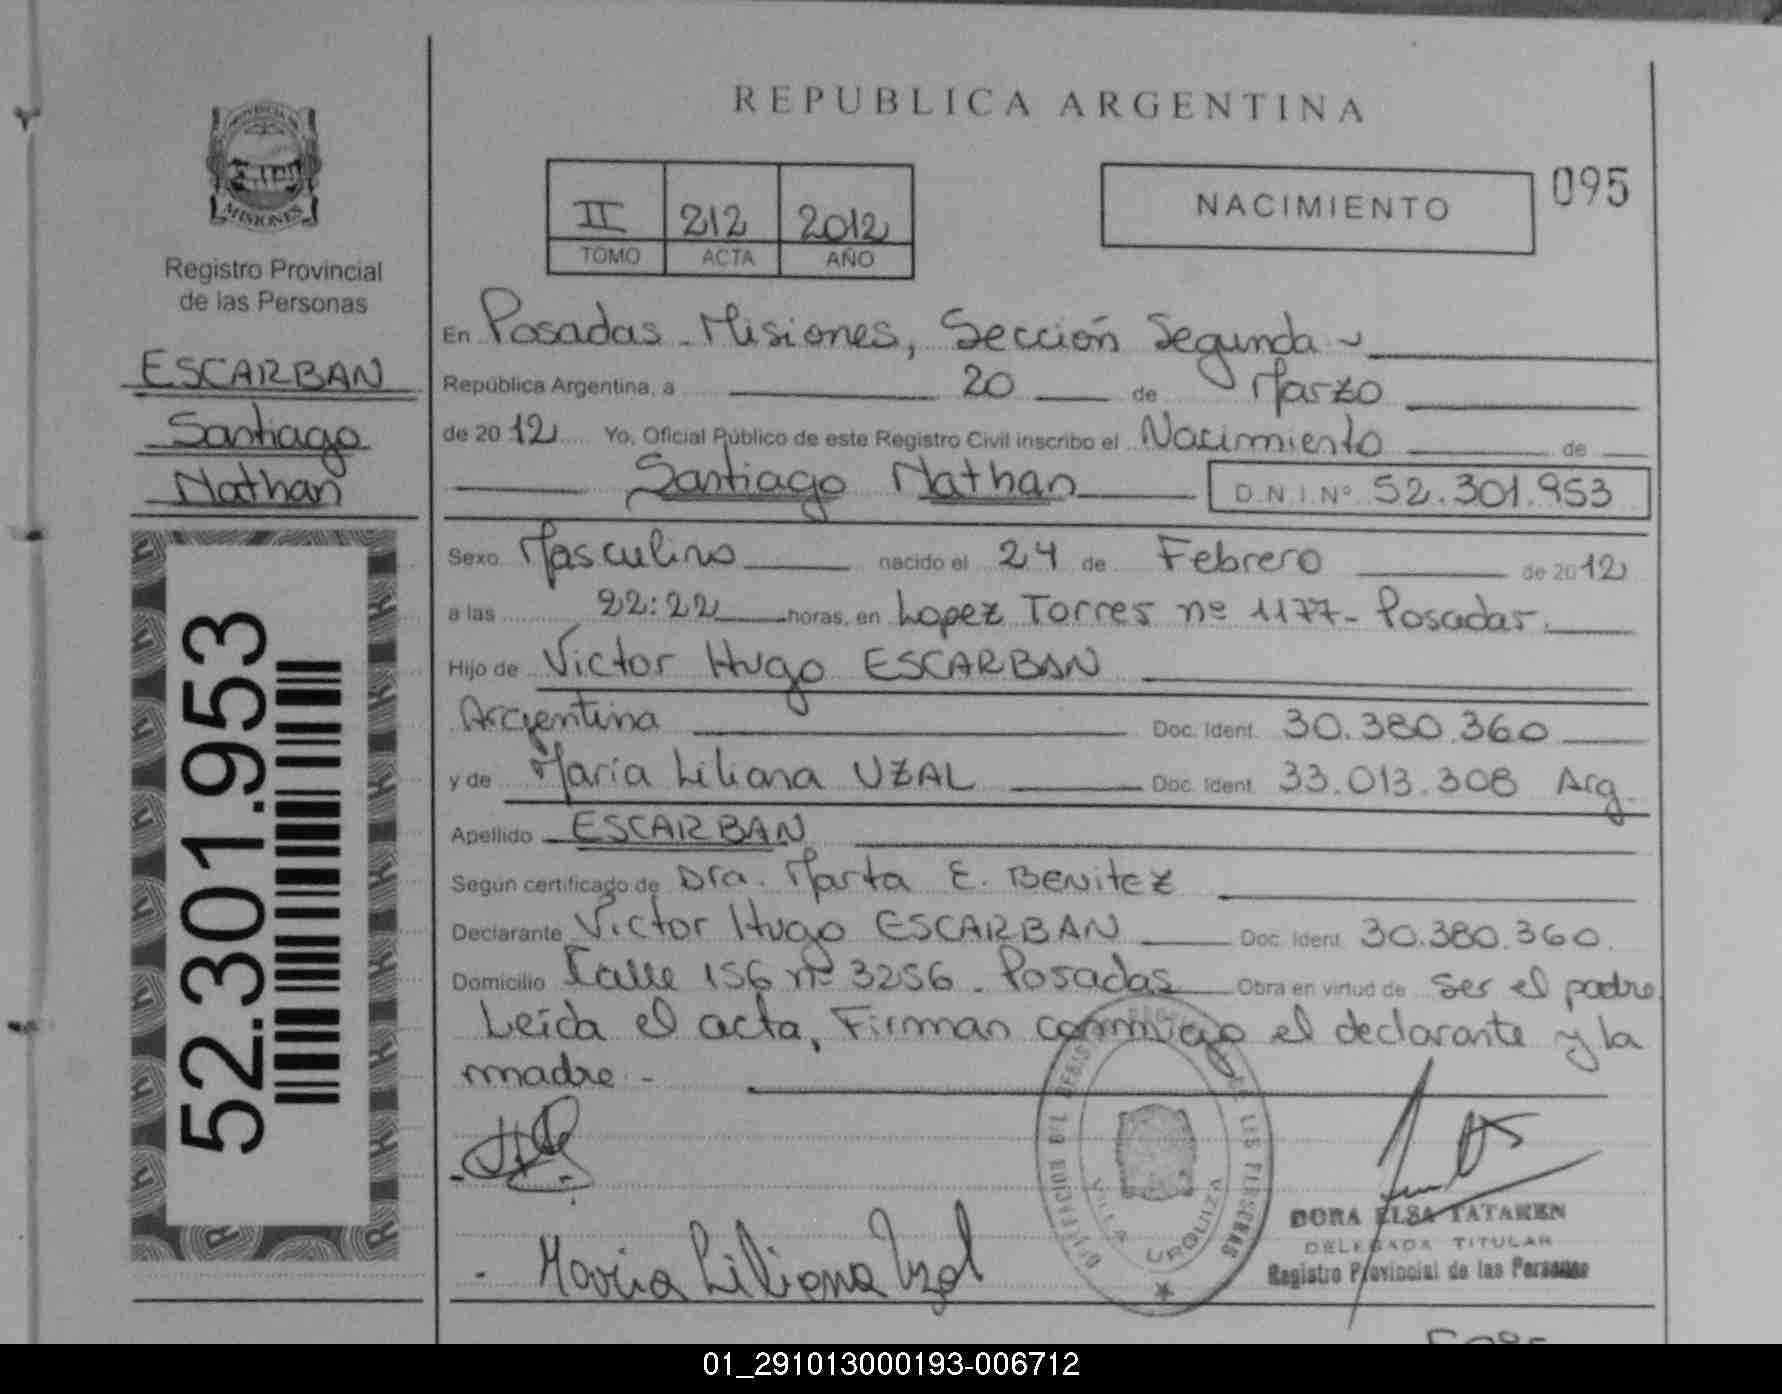 REPUBLICA ARGENTINA
PROVINCIA DE
MISIONES
Registro Provincial
de las Personas
ESCARBAN
Santiago
Nathan
52.301.953
II 212 2012
TOMO ACTA AÑO
NACIMIENTO
095
En Posadas - Misiones, Sección Segunda
República Argentina, a 20 de Marzo
de 2012 Yo, Oficial Público de este Registro Civil inscribo el Nacimiento de
Santiago Nathan D.N.I. Nº 52.301.953
Sexo Masculino nacido el 24 de Febrero de 2012
a las 22:22 horas, en Lopez Torres nº 1177- Posadas.
Hijo de Victor Hugo ESCARBAN
Argentina Doc. Ident. 30.380.360
y de María Liliana UZAL Doc. Ident. 33.013.308 Arg.
Apellido ESCARBAN
Según certificado de Dra. Marta E. Benitez
Declarante Victor Hugo ESCARBAN Doc. Ident. 30.380.360.
Domicilio Calle 156 nº 3256 - Posadas Obra en virtud de ser el padre
Leída el acta, Firman conmigo el declarante y la
madre -
LAS PERSONAS
VILLA URQUIZA
María Liliana Uzal
DORA ELSA TATAREN
DELEGADA TITULAR
Registro Provincial de las Personas
01_291013000193-006712